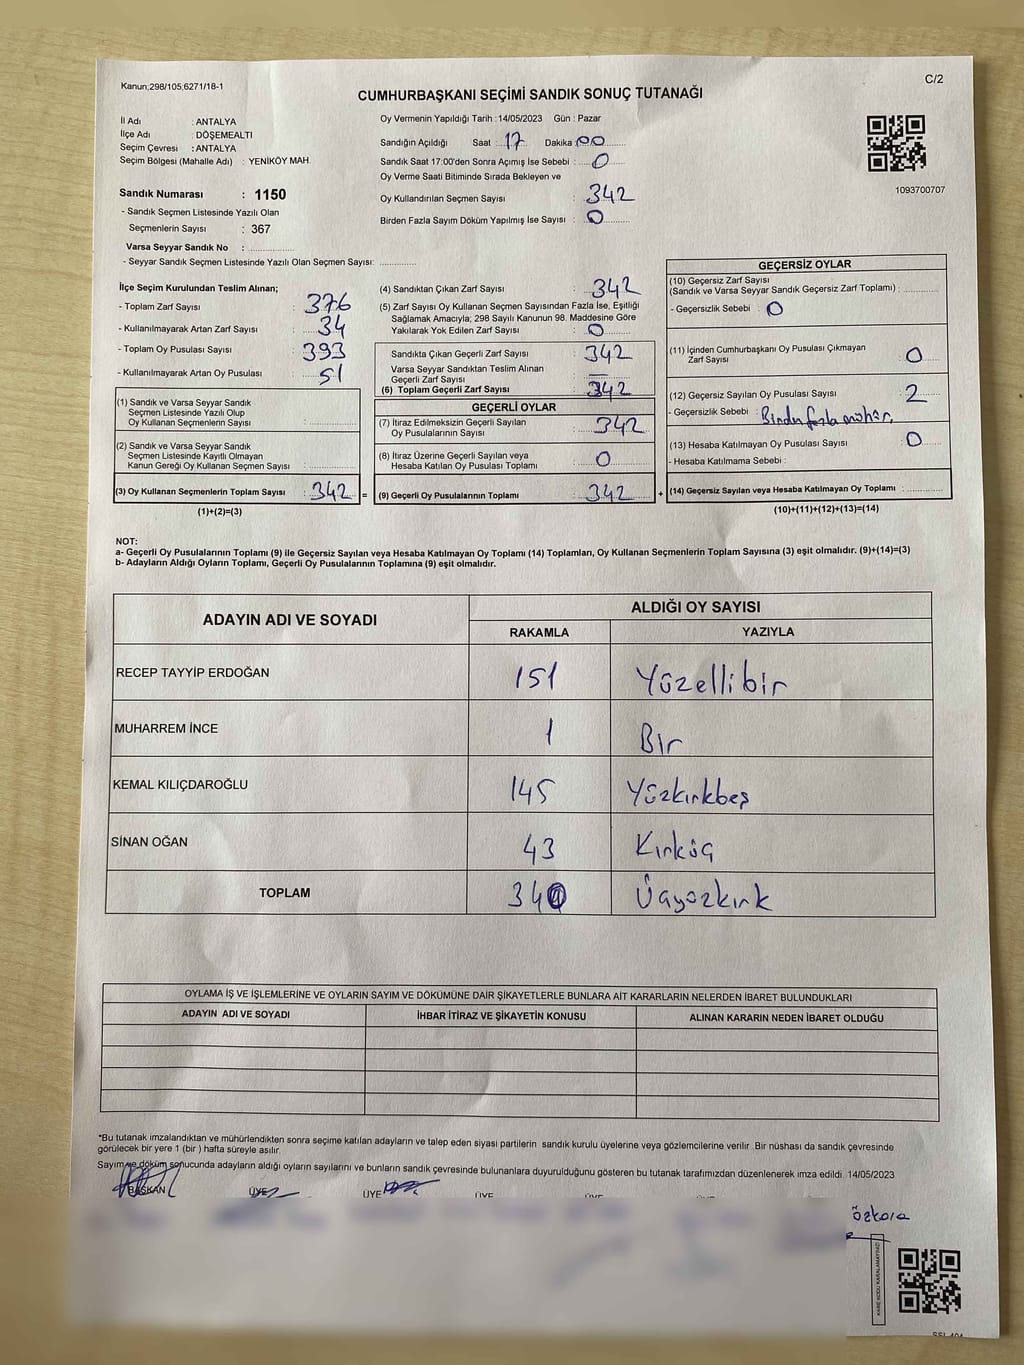 Kanun;298/105;6271/18-1
C/2
CUMHURBAŞKANI SEÇİMİ SANDIK SONUÇ TUTANAĞI
İl Adı : ANTALYA
İlçe Adı : DÖŞEMEALTI
Seçim Çevresi : ANTALYA
Seçim Bölgesi (Mahalle Adı) : YENİKÖY MAH.
Sandık Numarası : 1150
- Sandık Seçmen Listesinde Yazılı Olan
Seçmenlerin Sayısı : 367
Varsa Seyyar Sandık No :
- Seyyar Sandık Seçmen Listesinde Yazılı Olan Seçmen Sayısı:
Oy Vermenin Yapıldığı Tarih :14/05/2023 Gün : Pazar
Sandığın Açıldığı Saat : 17 Dakika : 00
Sandık Saat 17:00'den Sonra Açımış İse Sebebi : 0
Oy Verme Saati Bitiminde Sırada Bekleyen ve
Oy Kullandırılan Seçmen Sayısı : 342
Birden Fazla Sayım Döküm Yapılmış İse Sayısı : 0
1093700707
İlçe Seçim Kurulundan Teslim Alınan;
- Toplam Zarf Sayısı : 376
- Kullanılmayarak Artan Zarf Sayısı : 34
- Toplam Oy Pusulası Sayısı : 393
- Kullanılmayarak Artan Oy Pusulası : 51
(1) Sandık ve Varsa Seyyar Sandık
Seçmen Listesinde Yazılı Olup
Oy Kullanan Seçmenlerin Sayısı :
(2) Sandık ve Varsa Seyyar Sandık
Seçmen Listesinde Kayıtlı Olmayan
Kanun Gereği Oy Kullanan Seçmen Sayısı :
(3) Oy Kullanan Seçmenlerin Toplam Sayısı : 342 =
(1)+(2)=(3)
(4) Sandıktan Çıkan Zarf Sayısı : 342
(5) Zarf Sayısı Oy Kullanan Seçmen Sayısından Fazla İse, Eşitliği
Sağlamak Amacıyla; 298 Sayılı Kanunun 98. Maddesine Göre
Yakılarak Yok Edilen Zarf Sayısı : 0
Sandıkta Çıkan Geçerli Zarf Sayısı : 342
Varsa Seyyar Sandıktan Teslim Alınan
Geçerli Zarf Sayısı : —
(6) Toplam Geçerli Zarf Sayısı : 342
GEÇERLİ OYLAR
(7) İtiraz Edilmeksizin Geçerli Sayılan
Oy Pusulalarının Sayısı : 342
(8) İtiraz Üzerine Geçerli Sayılan veya
Hesaba Katılan Oy Pusulası Toplamı : 0
(9) Geçerli Oy Pusulalarının Toplamı : 342 +
GEÇERSİZ OYLAR
(10) Geçersiz Zarf Sayısı
(Sandık ve Varsa Seyyar Sandık Geçersiz Zarf Toplamı) :
- Geçersizlik Sebebi : 0
(11) İçinden Cumhurbaşkanı Oy Pusulası Çıkmayan
Zarf Sayısı : 0
(12) Geçersiz Sayılan Oy Pusulası Sayısı : 2
- Geçersizlik Sebebi : Birden fazla mühür.
(13) Hesaba Katılmayan Oy Pusulası Sayısı : 0
- Hesaba Katılmama Sebebi :
(14) Geçersiz Sayılan veya Hesaba Katılmayan Oy Toplamı :
(10)+(11)+(12)+(13)=(14)
NOT:
a- Geçerli Oy Pusulalarının Toplamı (9) ile Geçersiz Sayılan veya Hesaba Katılmayan Oy Toplamı (14) Toplamları, Oy Kullanan Seçmenlerin Toplam Sayısına (3) eşit olmalıdır. (9)+(14)=(3)
b- Adayların Aldığı Oyların Toplamı, Geçerli Oy Pusulalarının Toplamına (9) eşit olmalıdır.
ADAYIN ADI VE SOYADI
ALDIĞI OY SAYISI
RAKAMLA YAZIYLA
RECEP TAYYİP ERDOĞAN 151 Yüzellibir
MUHARREM İNCE 1 Bir
KEMAL KILIÇDAROĞLU 145 Yüzkırkbeş
SİNAN OĞAN 43 Kırküç
TOPLAM 340 Üçyüzkırk
OYLAMA İŞ VE İŞLEMLERİNE VE OYLARIN SAYIM VE DÖKÜMÜNE DAİR ŞİKAYETLERLE BUNLARA AİT KARARLARIN NELERDEN İBARET BULUNDUKLARI
ADAYIN ADI VE SOYADI İHBAR İTİRAZ VE ŞİKAYETİN KONUSU ALINAN KARARIN NEDEN İBARET OLDUĞU
*Bu tutanak imzalandıktan ve mühürlendikten sonra seçime katılan adayların ve talep eden siyasi partilerin sandık kurulu üyelerine veya gözlemcilerine verilir. Bir nüshası da sandık çevresinde
görülecek bir yere 1 (bir ) hafta süreyle asılır.
Sayım ve döküm sonucunda adayların aldığı oyların sayılarını ve bunların sandık çevresinde bulunanlara duyurulduğunu gösteren bu tutanak tarafımızdan düzenlenerek imza edildi. 14/05/2023
BAŞKAN ÜYE ÜYE ÜYE ÜYE ÜYE
Özkara
KARE KODU KARALAMAYINIZ!